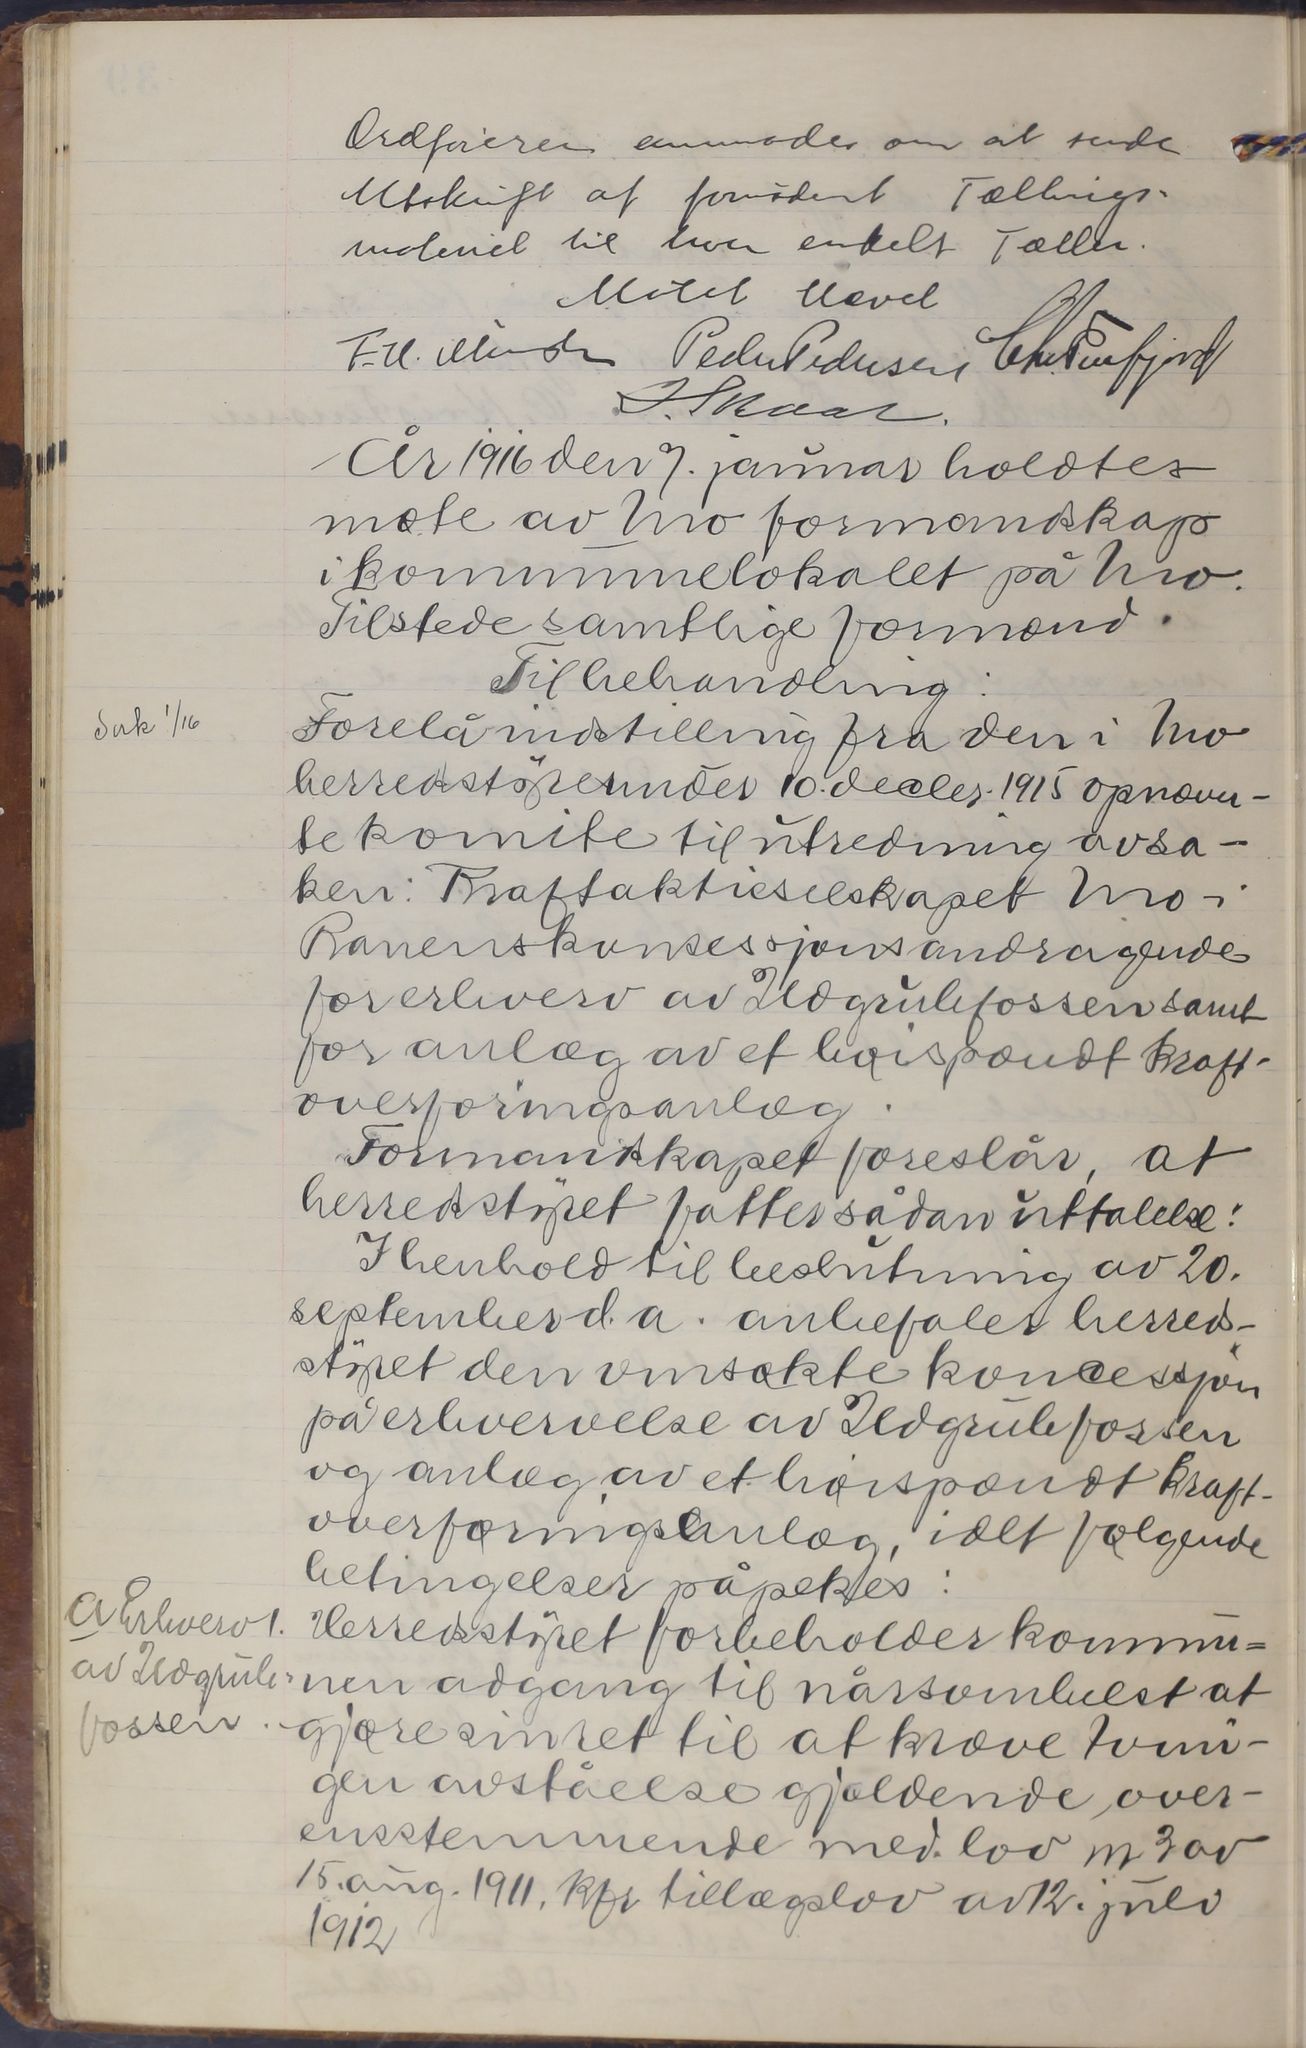 Ordføreren anmodes om at sende
Utskrift af fornødent Tællings-
materiel til hver enkelt Tæller.
Mötet hævet
Peder Pedersen
J. Skaar.
År 1916 den 7. januar holdtes
møte av Mo formandskap
i kommunelokalet på Mo.
Tilstede samtlige formænd.
Til behandling:
Sak 1/16
Forelå indstilling fra den i Mo
herredsstyre under 10. decbr. 1915 opnævn-
te komite til utredning av sa-
ken: Kraftaktieselskapet Mo i
Ranens konsessjonsandragende
for erhverv av Ildgrubefossen samt
for anlæg av et høispændt kraft-
overføringsanlæg.
Formandskapet foreslår, at
herredsstyret fatter sådan uttalelse:
I henhold til beslutning av 20.
september d. a. anbefaler herreds-
styret den omsøkte koncessjon
på erhvervelse av Ildgrubefossen
og anlæg av et høispændt kraft-
overføringsanlæg, idet følgende
betingelser påpekes:
a Erhverv
av Ildgrube-
fossen.
1. Herredsstyret forbeholder kommu=
nen adgang til nårsomhelst at
gjøre sin ret til at kræve tvun-
gen avståelse gjældende, over-
ensstemmende med lov nr 3 av
15. aug. 1911, kfr tillægslov av 12. juli
1912